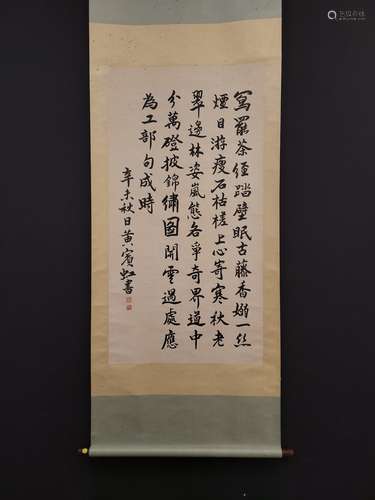 寫罷茶經踏壁眠古藤香嫋一絲
煙日游瘦石枯槎上心寄寒秋老
翠邊林姿嵐態各爭奇界道中
分萬磴披錦繡圖開雲過處應
為工部句成時
辛未秋日黃賓虹書